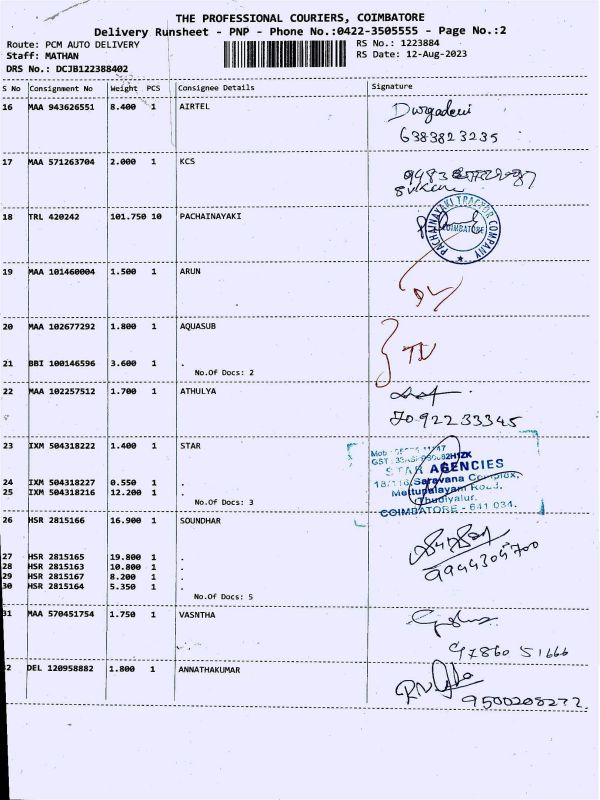 THE PROFESSIONAL COURIERS, COIMBATORE
Delivery Runsheet - PNP - Phone No.:0422-3505555 - Page No.:2
Route: PCM AUTO DELIVERY
RS No.: 1223884
Staff: MATHAN
RS Date: 12-Aug-2023
DRS No.: DCJB122388402
S No Consignment No Weight PCS Consignee Details Signature
16 MAA 943626551 8.400 1 AIRTEL Durgadevi
6383823235
17 MAA 571263704 2.000 1 KCS
18 TRL 420242 101.750 10 PACHAINAYAKI
PACHAINAYAKI TRACTOR COMPANY
COIMBATORE
19 MAA 101460004 1.500 1 ARUN
20 MAA 102677292 1.800 1 AQUASUB
21 BBI 100146596 3.600 1 .
No.Of Docs: 2
22 MAA 102257512 1.700 1 ATHULYA
70 92233345
23 IXM 504318222 1.400 1 STAR
STAR AGENCIES
18/116, Saravana Complex,
Mettupalayam Road,
Thudiyalur,
COIMBATORE - 641 034.
24 IXM 504318227 0.550 1 .
25 IXM 504318216 12.200 1 .
No.Of Docs: 3
26 HSR 2815166 16.900 1 SOUNDHAR
9944304700
27 HSR 2815165 19.800 1 .
28 HSR 2815163 10.800 1 .
29 HSR 2815167 8.200 1 .
30 HSR 2815164 5.350 1 .
No.Of Docs: 5
31 MAA 570451754 1.750 1 VASNTHA
97860 51666
2 DEL 120958882 1.800 1 ANNATHAKUMAR
9500208272.